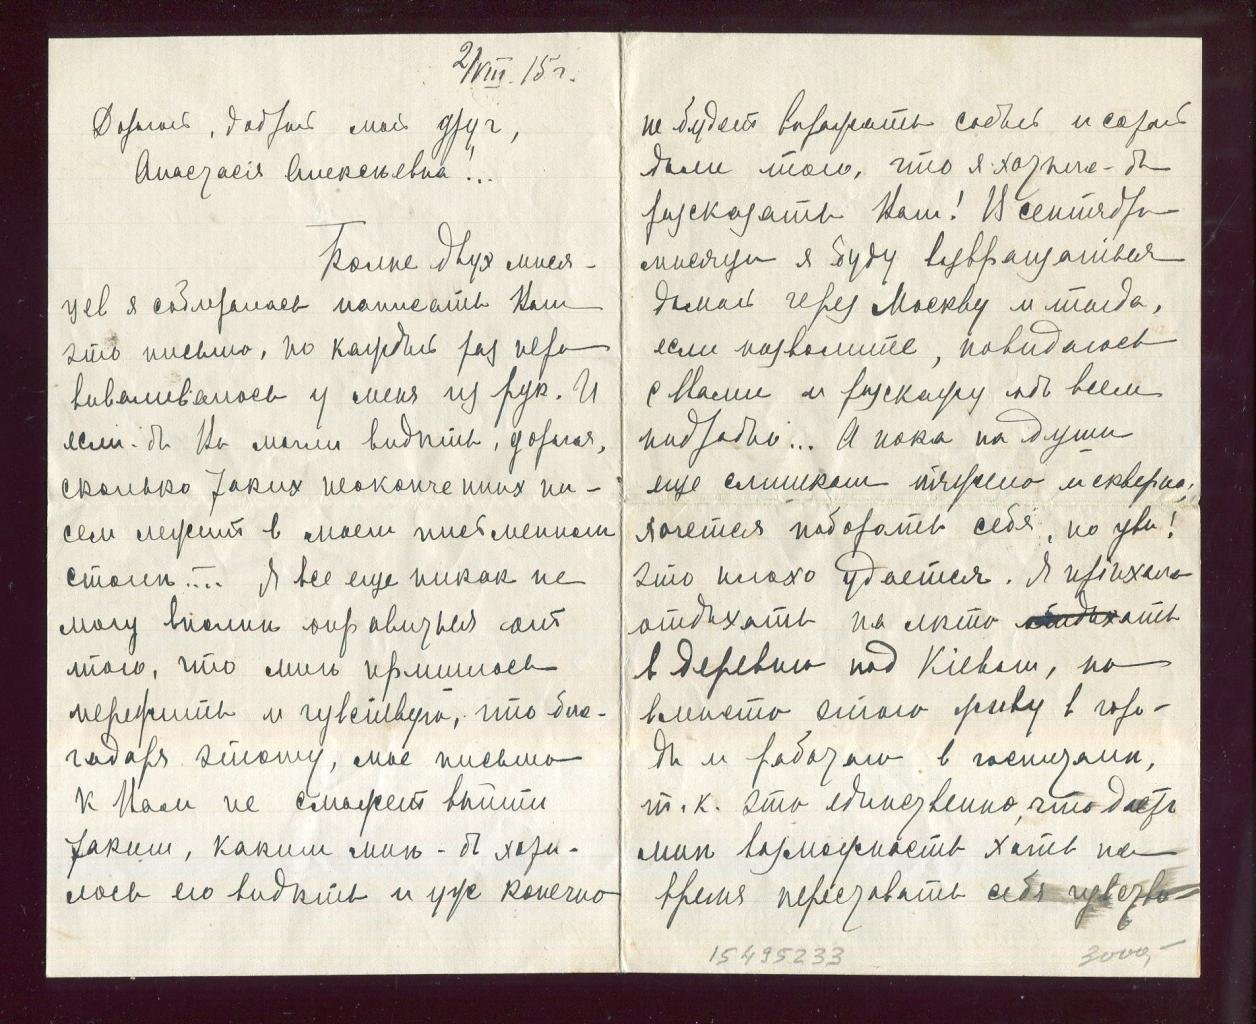 2/VIII. 15 г.
Дорогой, добрый мой друг,
Анастасія Алексѣевна!..
Болѣе двух мѣся-
цев я собиралась написать Вам
это письмо, но каждый раз перо
вываливалось у меня из рук. И
если-бы Вы могли видѣть, дорогая,
сколько таких неоконченных пи-
сем лежит в моем письменном
столѣ.... Я все еще никак не
могу вполнѣ оправиться от
того, что мнѣ пришлось
пережить и чувствую, что бла-
годаря этому, мое письмо
к Вам не сможет выйти
таким, каким мнѣ-бы хотѣ-
лось его видѣть и уж конечно
не будет выражать собой и сотой
доли того, что я хотѣла-бы
рассказать Вам! В сентябрѣ
мѣсяцѣ я буду возвращаться
домой через Москву и тогда,
если позволите, повидаюсь
с Вами и расскажу обо всем
подробно... А пока на душѣ
еще слишком тяжело и скверно,
хочется побороть себя, но увы!
это плохо удается. Я пріѣхала
отдыхать на лѣто
в деревню под Кіевом, но
вмѣсто этого живу в горо-
дѣ и работаю в госпиталѣ,
т.к. это единственно, что дает
мнѣ возможность хоть на
время перестать себя чувство
15495233
3000,-